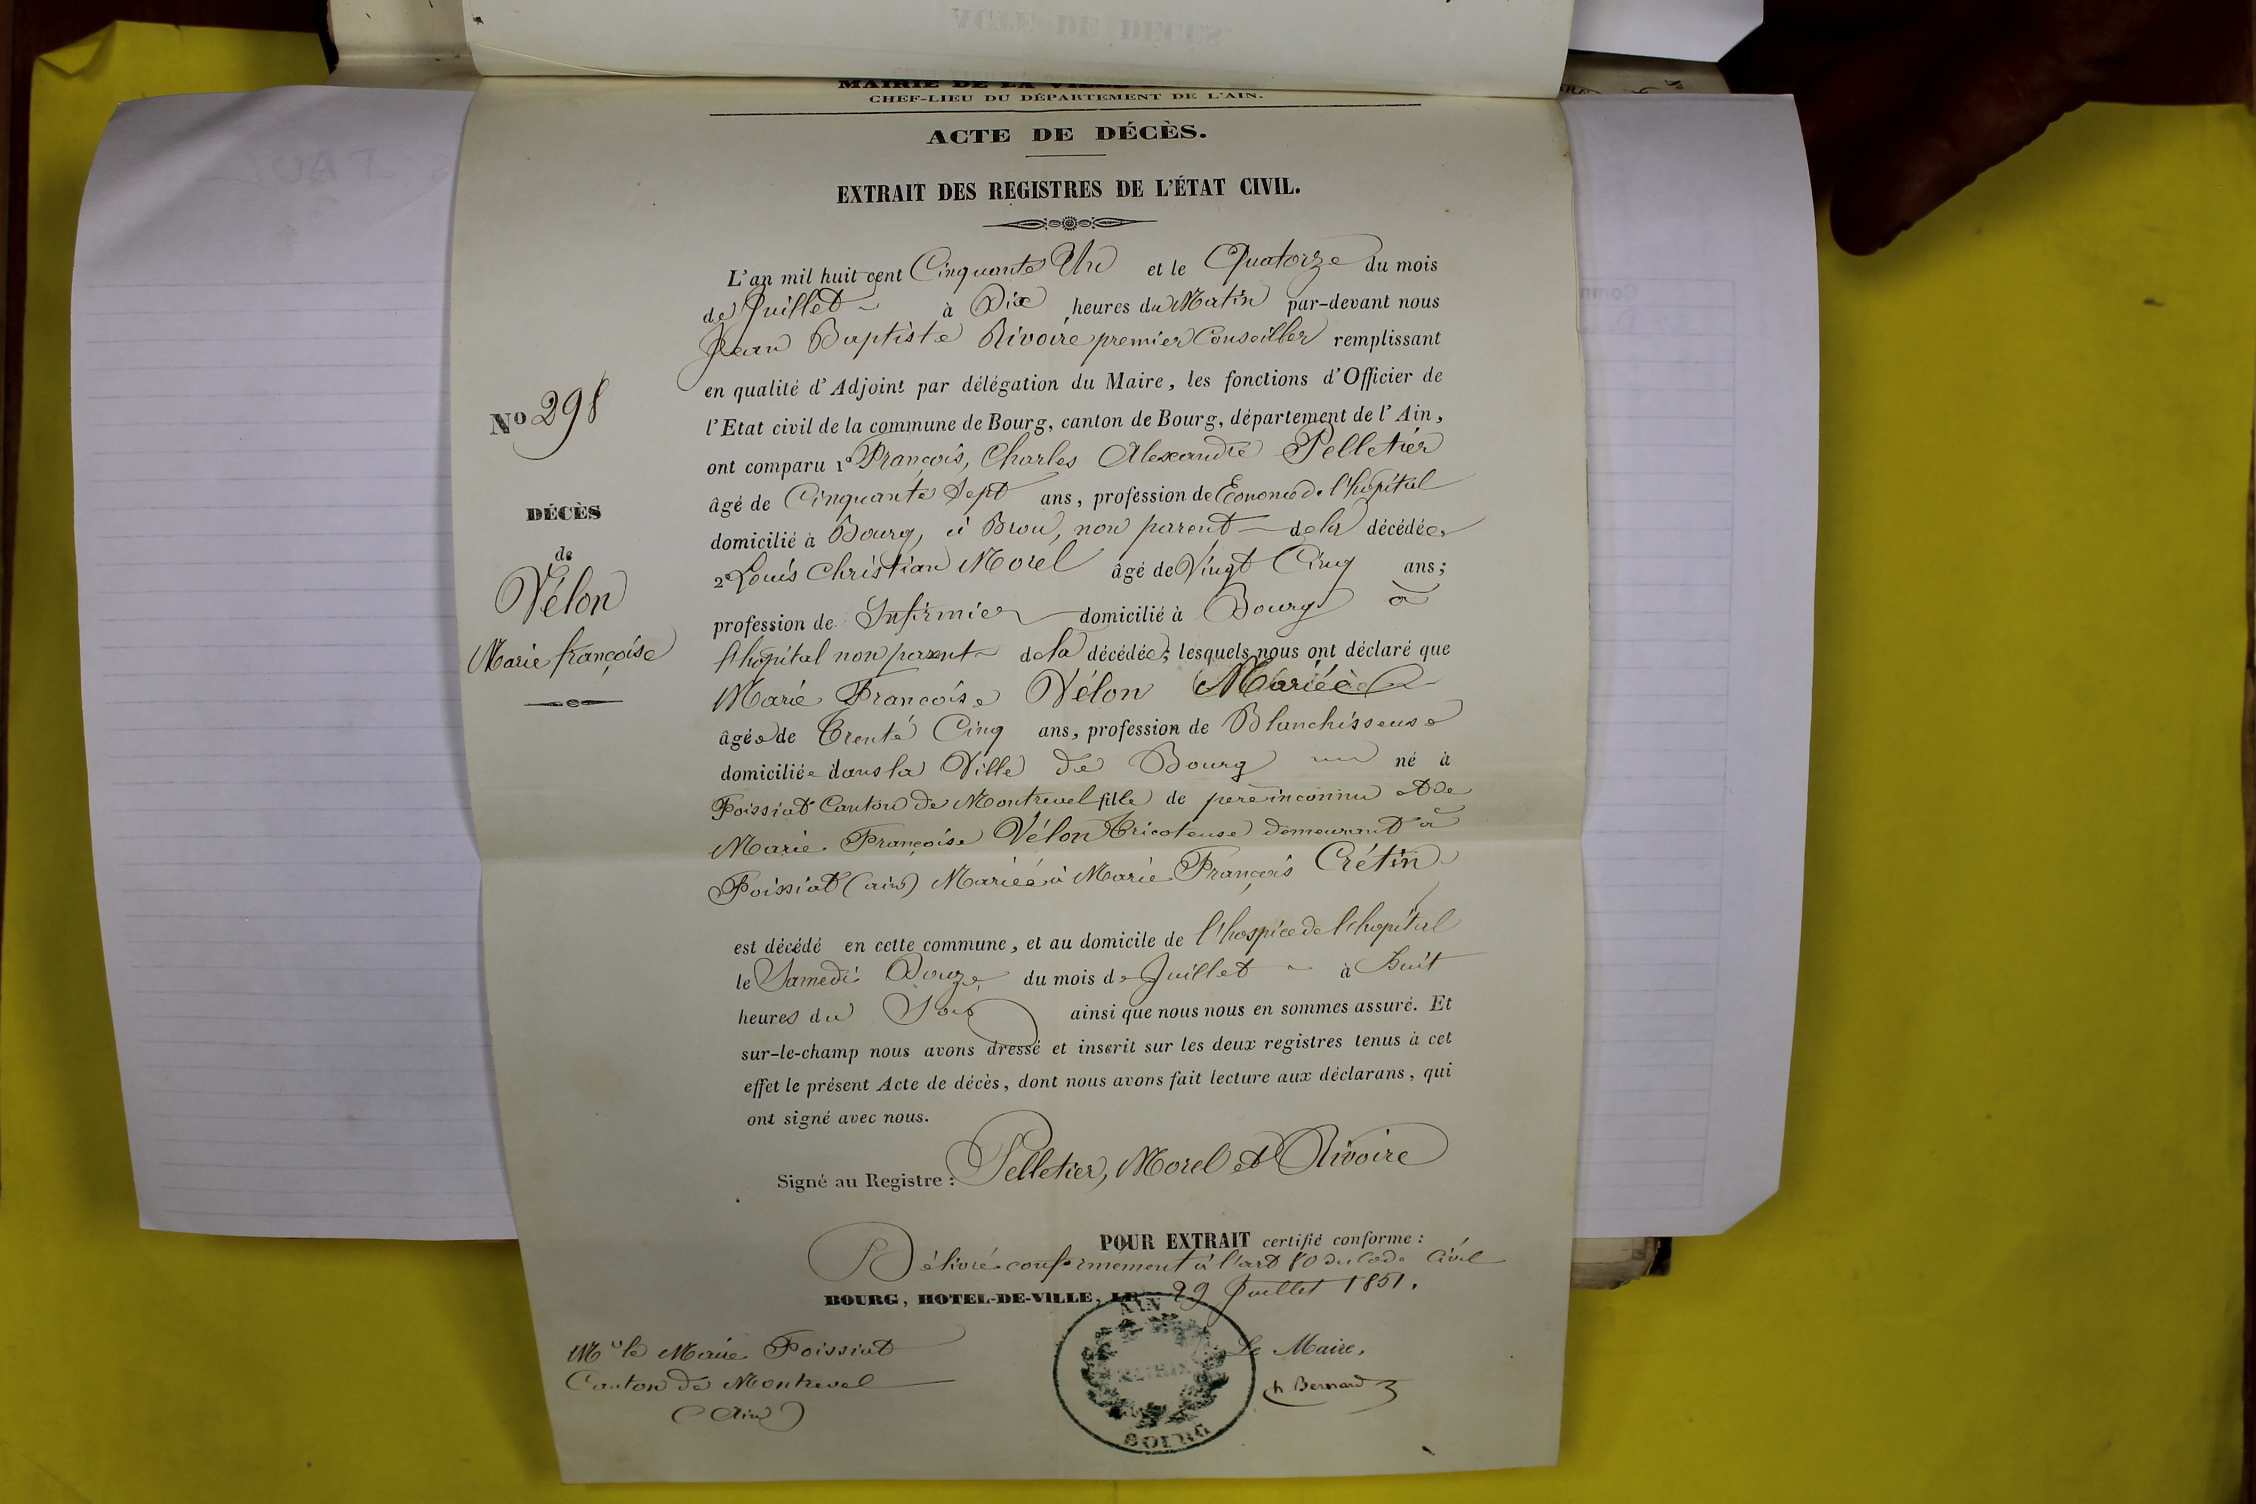 MAIRIE DE LA VILLE
CHEF-LIEU DU DÉPARTEMENT DE L'AIN.
ACTE DE DÉCÈS.
EXTRAIT DES REGISTRES DE L'ÉTAT CIVIL.
L'an mil huit cent Cinquante Un et le Quatorze du mois
de Juillet à Dix heures du Matin par-devant nous
Jean Baptiste Rivoire premier Conseiller remplissant
en qualité d'Adjoint par délégation du Maire, les fonctions d'Officier de
l'Etat civil de la commune de Bourg, canton de Bourg, département de l'Ain,
ont comparu 1º François, Charles Alexandre Pelletier
âgé de Cinquante Sept ans, profession de Econome de l'hopital
domicilié à Bourg, à Brou, non parent de la décédée
2º Louis Christian Morel âgé de Vingt Cinq ans;
profession de Infirmier domicilié à Bourg à
l'hopital non parent de la décédée; lesquels nous ont déclaré que
Marie Françoise Vélon Mariée
âgée de Trente Cinq ans, profession de Blanchisseuse
domiciliée dans la Ville de Bourg né à
Foissiat Canton de Montrevel fille de père inconnu et de
Marie Françoise Vélon Tricoteuse demeurant à
Foissiat (ain) Mariée à Marie François Crétin
est décédé en cette commune, et au domicile de l'hospice de l'hopital
le Samedi Douze du mois de Juillet à huit
heures du Soir ainsi que nous nous en sommes assuré. Et
sur-le-champ nous avons dressé et inscrit sur les deux registres tenus à cet
effet le présent Acte de décès, dont nous avons fait lecture aux déclarans, qui
ont signé avec nous.
Signé au Registre : Pelletier, Morel et Rivoire
POUR EXTRAIT certifié conforme :
Délivré conformement à l'art 80 du Code Civil
BOURG, HOTEL-DE-VILLE, LE 29 Juillet 1851.
Le Maire,
Ch Bernard
AIN
MAIRIE
BOURG
Mr le Maire Foissiat
Canton de Montrevel
(Ain)
Nº 298
DÉCÈS
de
Vélon
Marie françoise